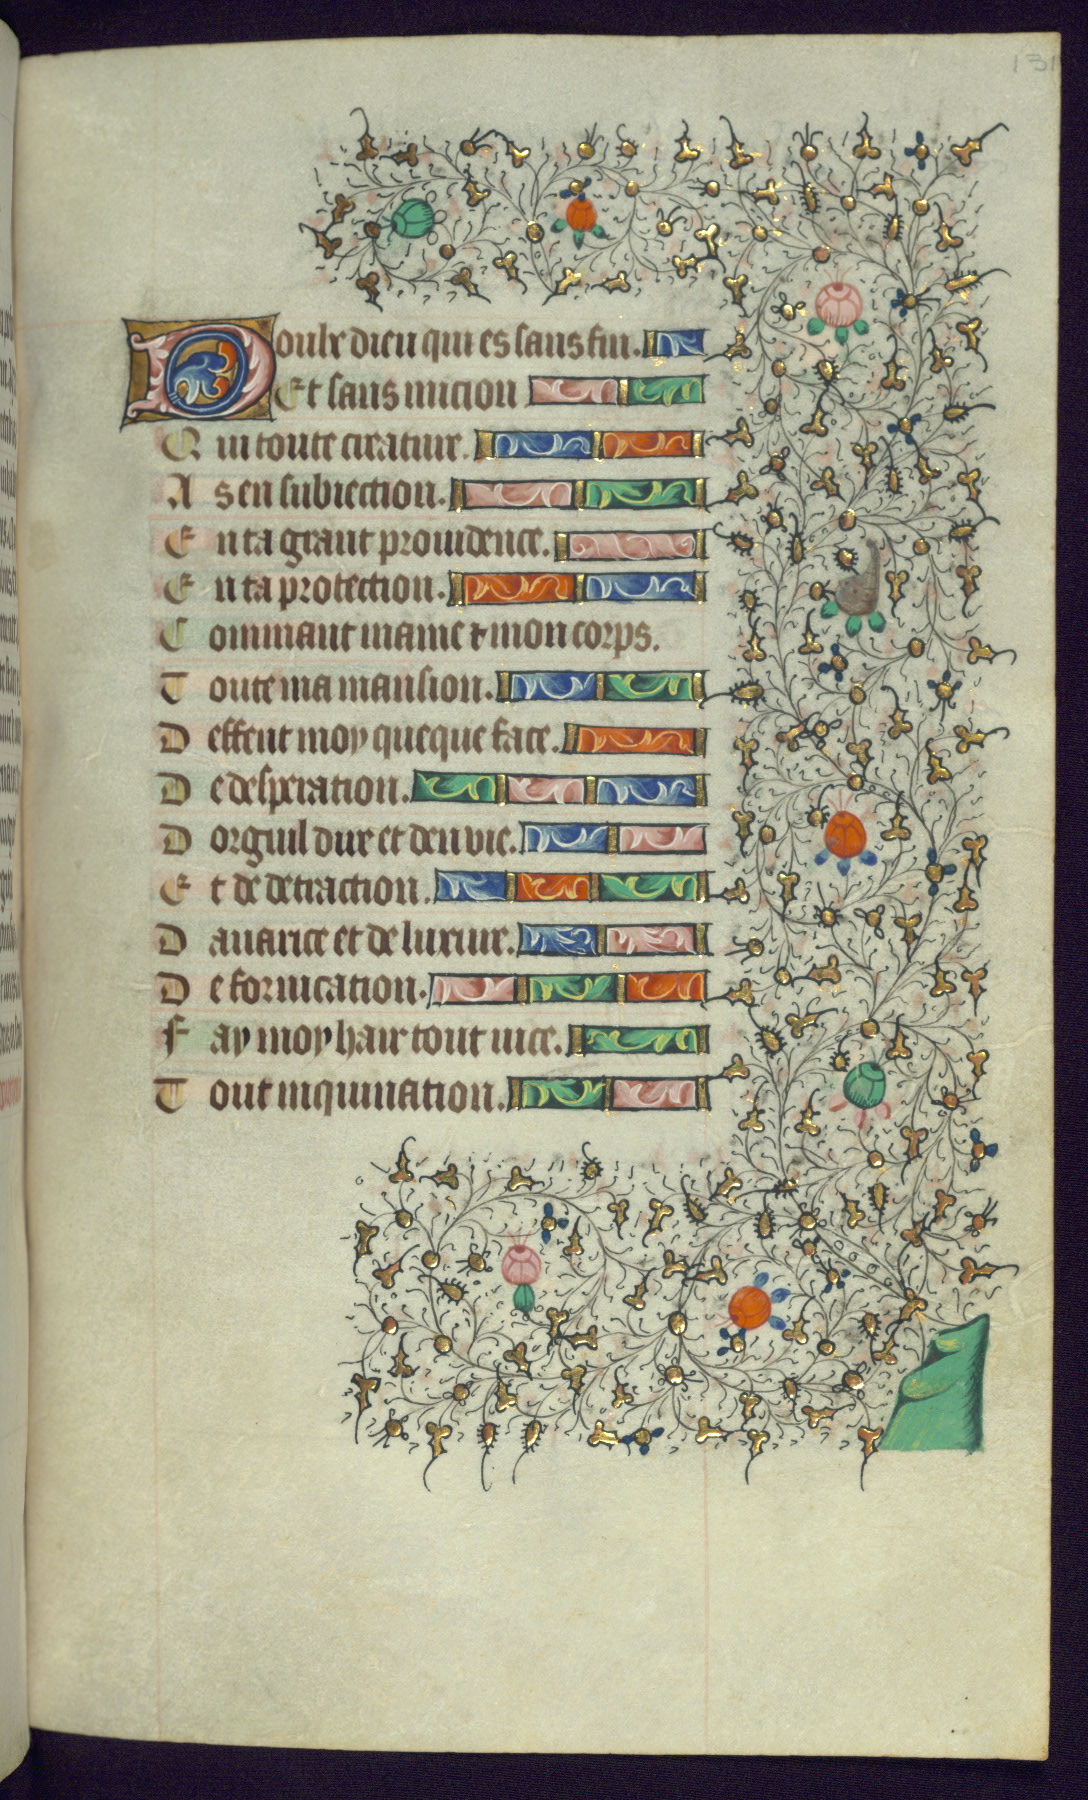 131
Doulx dieu qui es sans fin.
Et sans inicion
Qui toute creature.
As en subiection.
En ta grant prouidence.
En ta protection.
Commant mame & mon corps.
Toute ma mansion.
Deffent moy que que face.
De desperation.
Dorguil dire et denvie.
Et de detraction.
Dauarice et de luxure.
De fornication.
Fay moy hair tout uice.
Tout inquination.